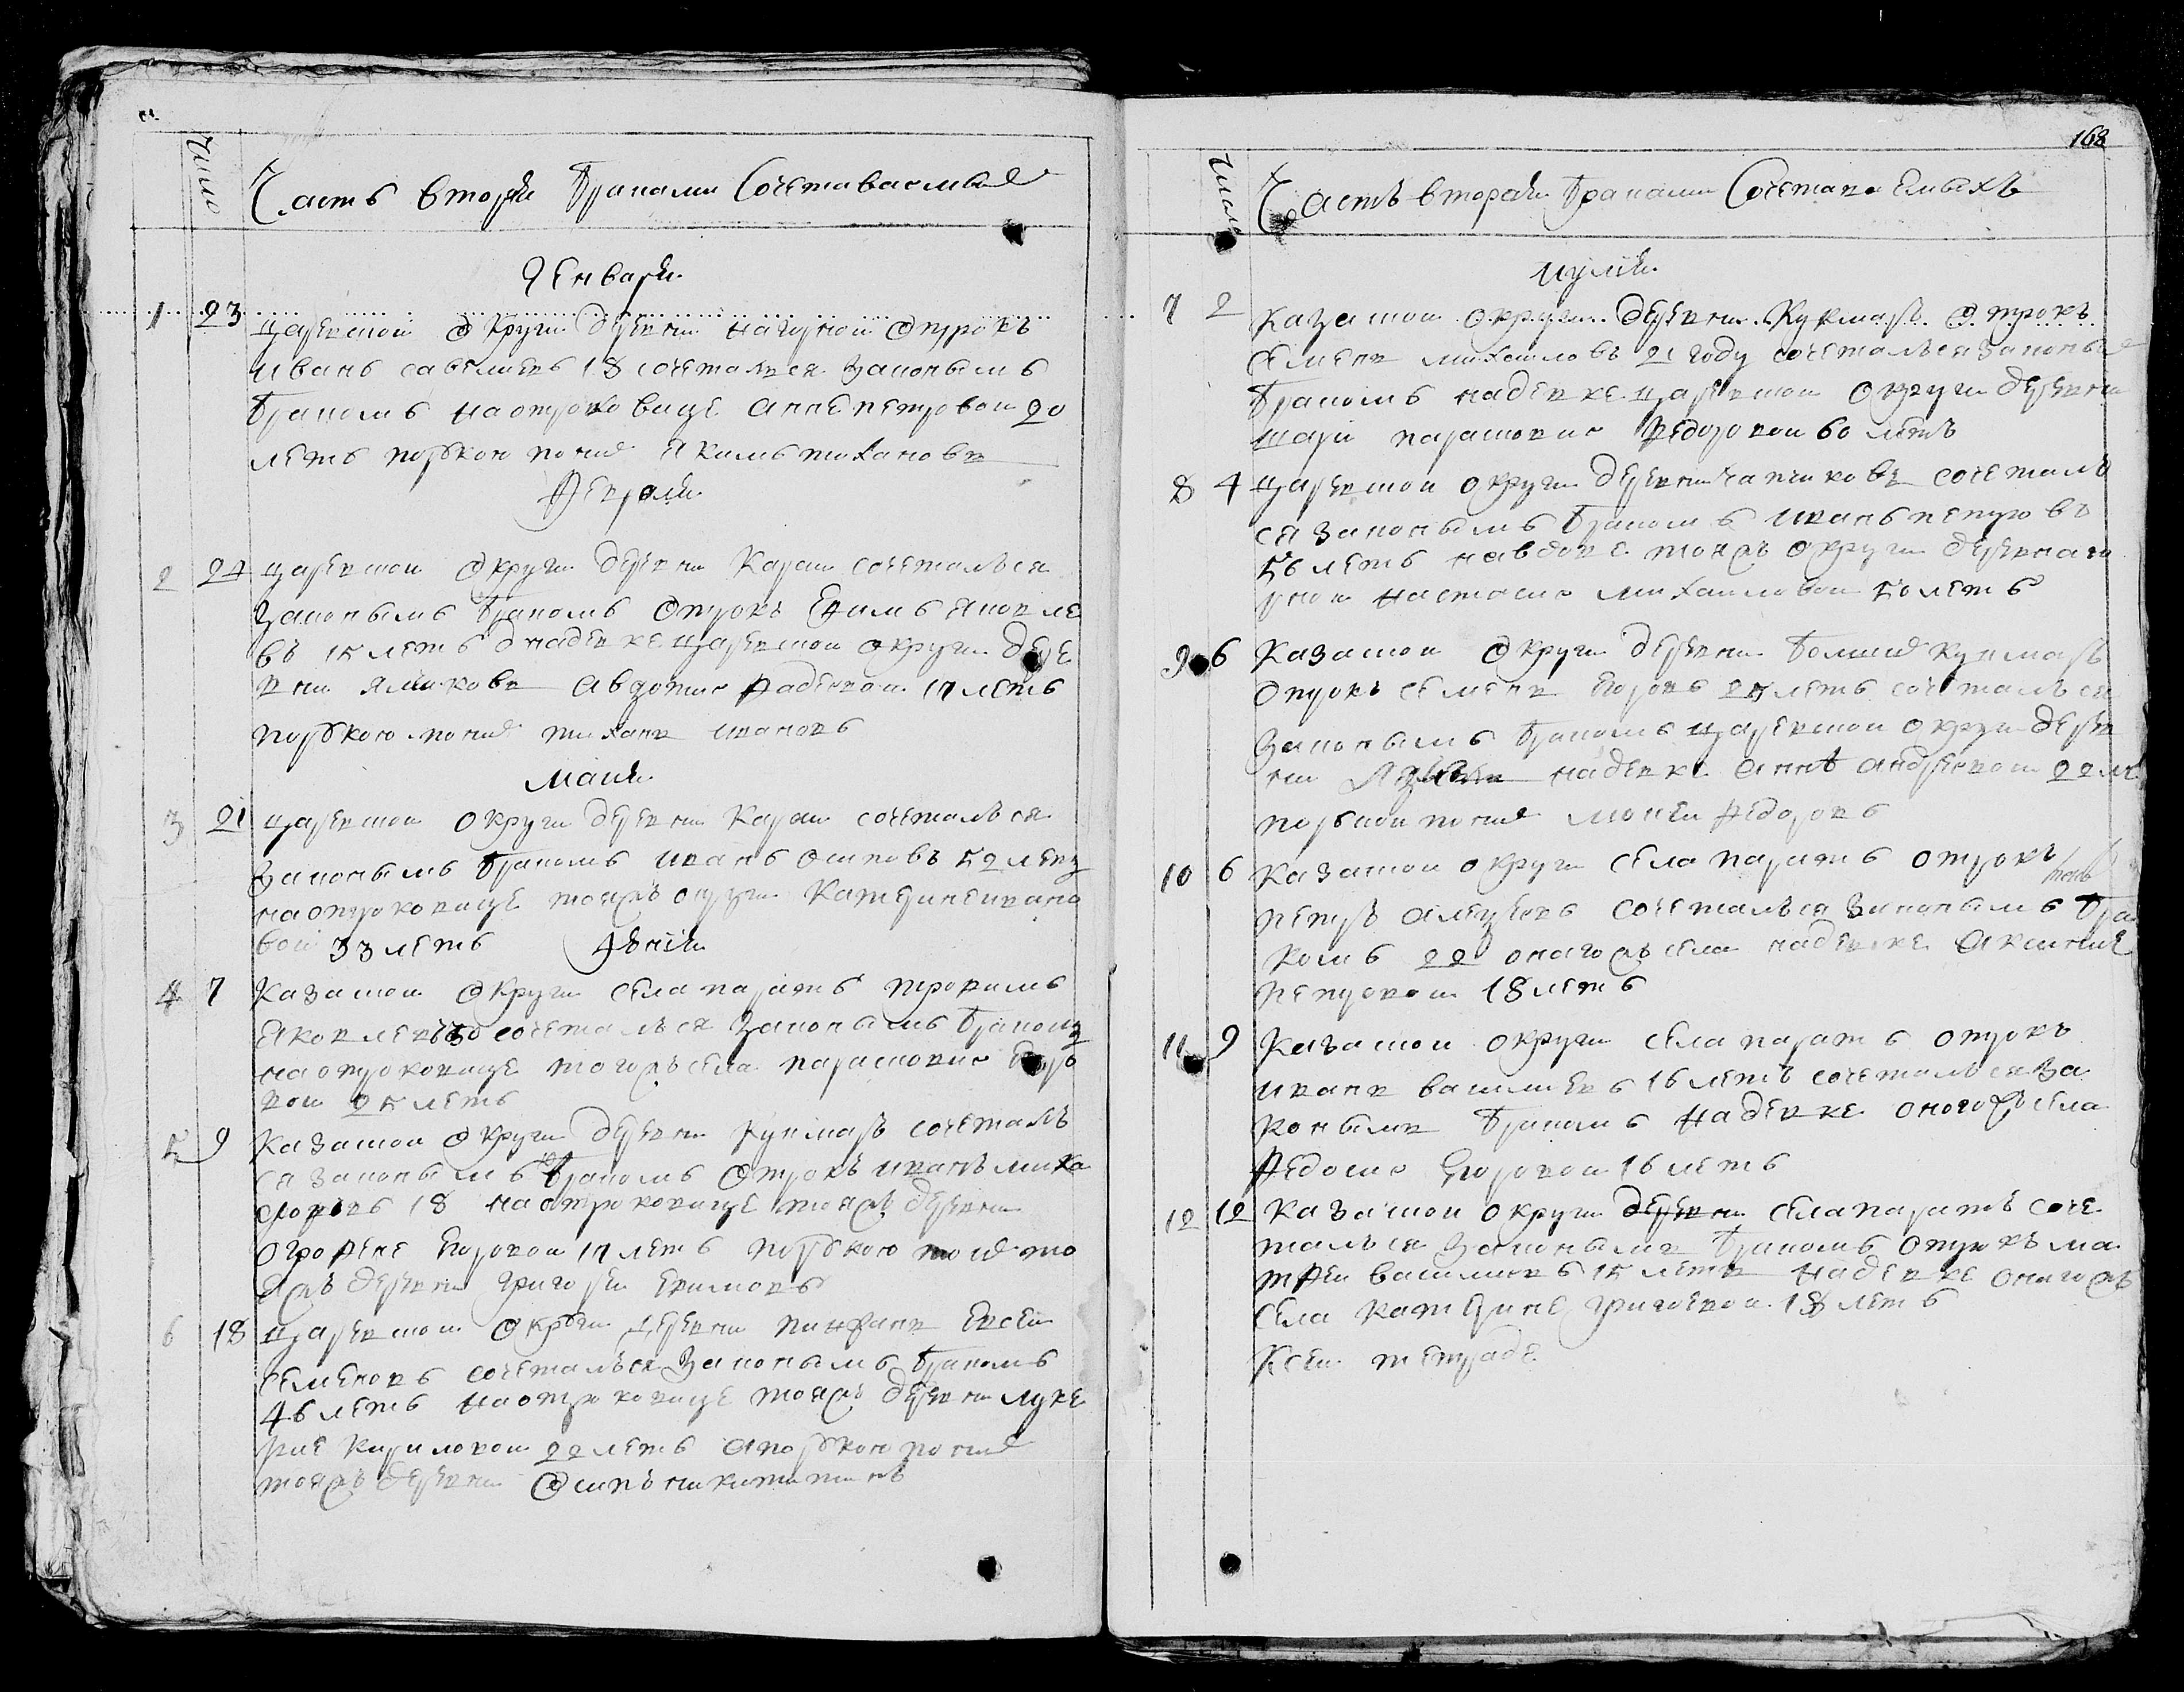 Число
Часть вторая браками сочетаваемые
Генваря
1 23 царевшой округи деревни нагорной отрокъ
иванъ савельевъ 18 сочетался законымъ
бракомъ на отроковице анне петровой 20
летъ порукою по них екимъ тихановъ
Февраля
2 24 царевшой округи деревни Кара сочеталься
законымъ бракомъ отрокъ Ефимъ яковле
въ 15 летъ на девке царевшой округи дере
вни авдотье фадеевой 17 летъ
порукою по них тиханъ ивановъ
маия
3 21 царевшой округи деревни Кара сочеталься
законымъ бракомъ иванъ осиповъ 52 летъ
на отроковице тояжъ округи Катерине ивано
вой 33 летъ Июния
4 7 Казашой округи села паратъ трофимъ
яковлевъ сочеталься законымъ бракомъ
на отроковице тогожъ села парасковье Егоро
вой 25 летъ
5 9 Казашой округи деревни Кукмаръ сочеталь
ся законымъ бракомъ отрокъ иванъ миха
йловъ 18 на отроковице тояжъ деревни
огрофене Егоровой 17 летъ порукою по них то
яжъ деревни григорей Ефимовъ
6 18 царевшой округи деревни Евсей
семеновъ сочеталься законымъ бракомъ
46 летъ на отроковице тояжъ деревни луке
рие кириловой 22 летъ а порукою по них
тояжъ деревни осипъ никитинъ
168
Число
Часть вторая браками сочетаваемыхъ
июлия
7 2 Казашой округи деревни Кукмаръ отрокъ
семенъ михайловъ 21 году сочеталься законые
бракомъ на девке царевшой округи деревни
парасковье федоровой 60 летъ
8 4 царевшой округи деревни сочеталь
ся законымъ бракомъ иванъ петровъ
56 летъ на вдове тояжъ округи деревни наго
рной настасье михайловой 50 летъ
9 6 Казашой округи деревни болших Кукмаръ
отрокъ семенъ Егоровъ 25 летъ сочеталься
законымъ бракомъ царевшой округи дерев
ни на девке анне андреевой 22 ле
порукой по них мокей федоровъ
10 6 Казашой округи села паратъ отрокъ
петръ алексеевъ сочеталься законымъ бра
комъ 22 оногожъ села на девке аксинье
петровой 18 летъ
11 9 Казашой округи села паратъ отрокъ
иванъ василиевъ 16 летъ сочеталься за
конымъ бракомъ на девке оногожъ села
федосье Егоровой 16 летъ
12 12 Казашой округи деревни села паратъ соче
тальься законымъ бракомъ отрокъ ма
тфей василиевъ 15 летъ на девке оногожъ
села катерине григоевой 18 летъ
Ксей тетраде